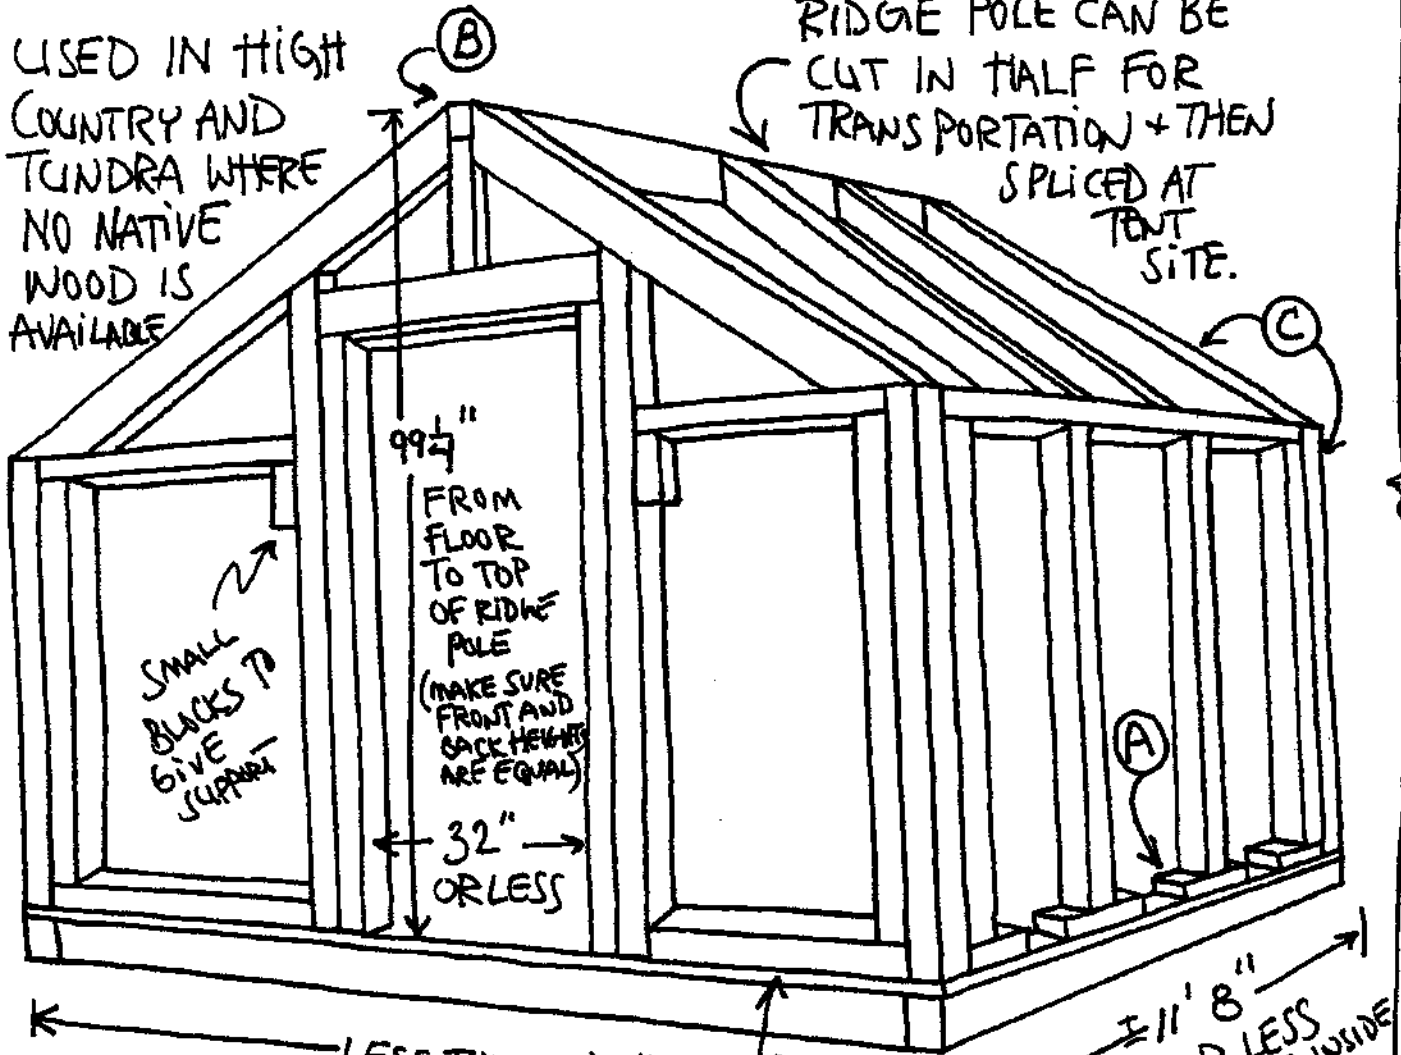 USED IN HIGH
COUNTRY AND
TUNDRA WHERE
NO NATIVE
WOOD IS
AVAILABLE
B
RIDGE POLE CAN BE
CUT IN HALF FOR
TRANSPORTATION + THEN
SPLICED AT
TENT
SITE.
C
99 1/4"
FROM
FLOOR
TO TOP
OF RIDGE
POLE
(MAKE SURE
FRONT AND
BACK HEIGHTS
ARE EQUAL)
32"
OR LESS
SMALL
BLOCKS TO
GIVE
SUPPORT
A
± 11' 8"
LESS
INSIDE